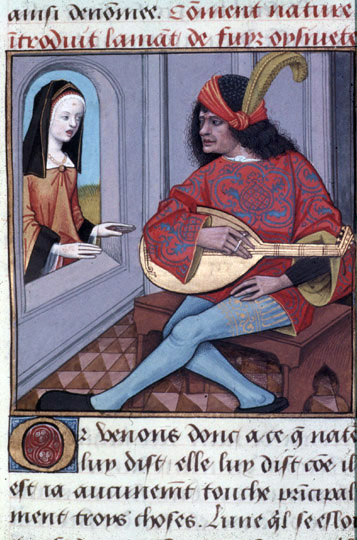 ainsi denommee. Cōment nature
ītroduit lamāt de fuyr opsiuete
Or venons donc a ce q̄ nat
luy dist elle luy dist cōe il
est ia aucunemt touche pr̄ncipal
ment troys choses. Lune q̄l se eslo